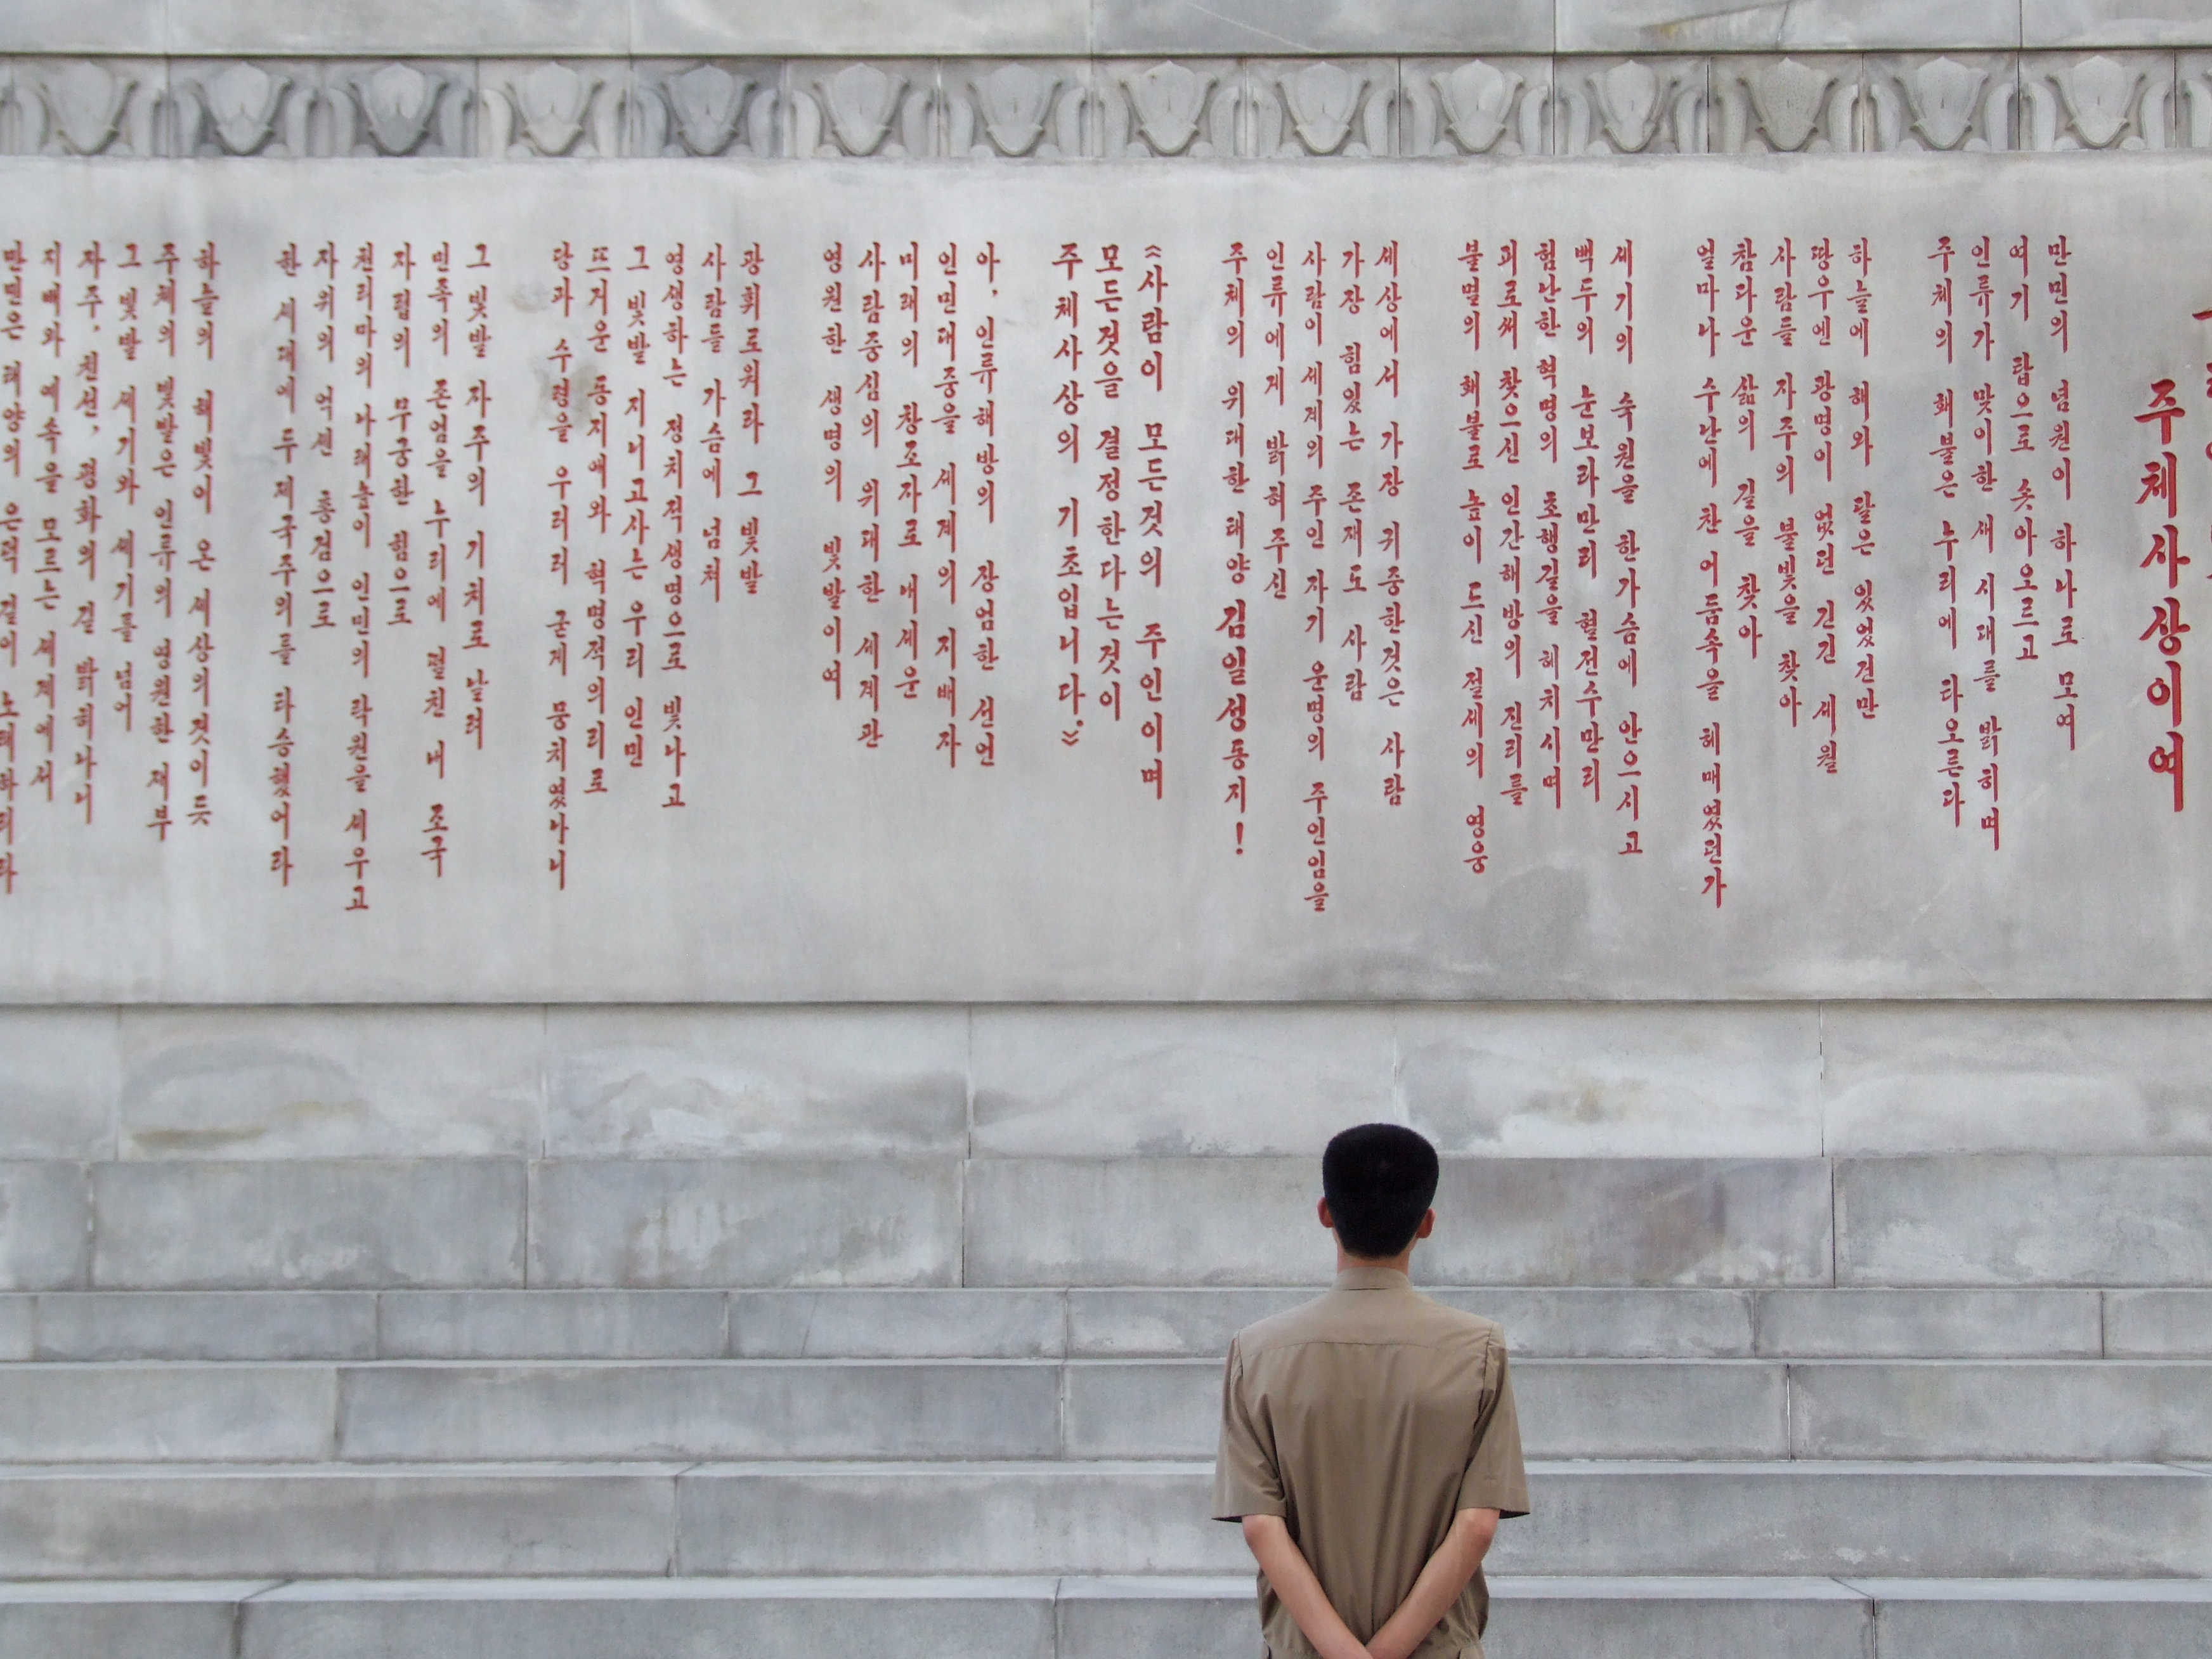 주체사상이여
만민의 념원이 하나로 모여
여기 탑으로 솟아오르고
인류가 맞이한 새 시대를 밝히며
주체의 홰불은 누리에 타오른다
하늘에 해와 달은 있었건만
땅우엔 광명이 없던 긴긴 세월
사람들 자주의 불빛을 찾아
참다운 삶의 길을 찾아
얼마나 수난에 찬 어둠속을 헤매였던가
세기의 숙원을 한가슴에 안으시고
백두의 눈보라만리 혈전수만리
험난한 혁명의 초행길을 헤치시며
피로써 찾으신 인간해방의 진리를
불멸의 홰불로 높이 드신 절세의 영웅
세상에서 가장 귀중한것은 사람
가장 힘있는 존재도 사람
사람이 세계의 주인 자기 운명의 주인임을
인류에게 밝혀주신
주체의 위대한 태양 김일성동지!
《사람이 모든것의 주인이며
모든것을 결정한다는것이
주체사상의 기초입니다.》
아, 인류해방의 장엄한 선언
인민대중을 세계의 지배자
미래의 창조자로 내세운
사람중심의 위대한 세계관
영원한 생명의 빛발이여
광휘로워라 그 빛발
사람들 가슴에 넘쳐
영생하는 정치적생명으로 빛나고
그 빛발 지니고사는 우리 인민
뜨거운 동지애와 혁명적의리로
당과 수령을 우러러 굳게 뭉치였나니
그 빛발 자주의 기치로 날려
민족의 존엄을 누리에 떨친 내 조국
자립의 무궁한 힘으로
천리마의 나래높이 인민의 락원을 세우고
자위의 억센 총검으로
한 세대에 두 제국주의를 타승했어라
하늘의 해빛이 온 세상의것이듯
주체의 빛발은 인류의 영원한 재부
그 빛발 세기와 세기를 넘어
자주, 친선, 평화의 길 밝히나니
지배와 예속을 모르는 세계에서
만민은 태양의 은덕 길이 노래하리라